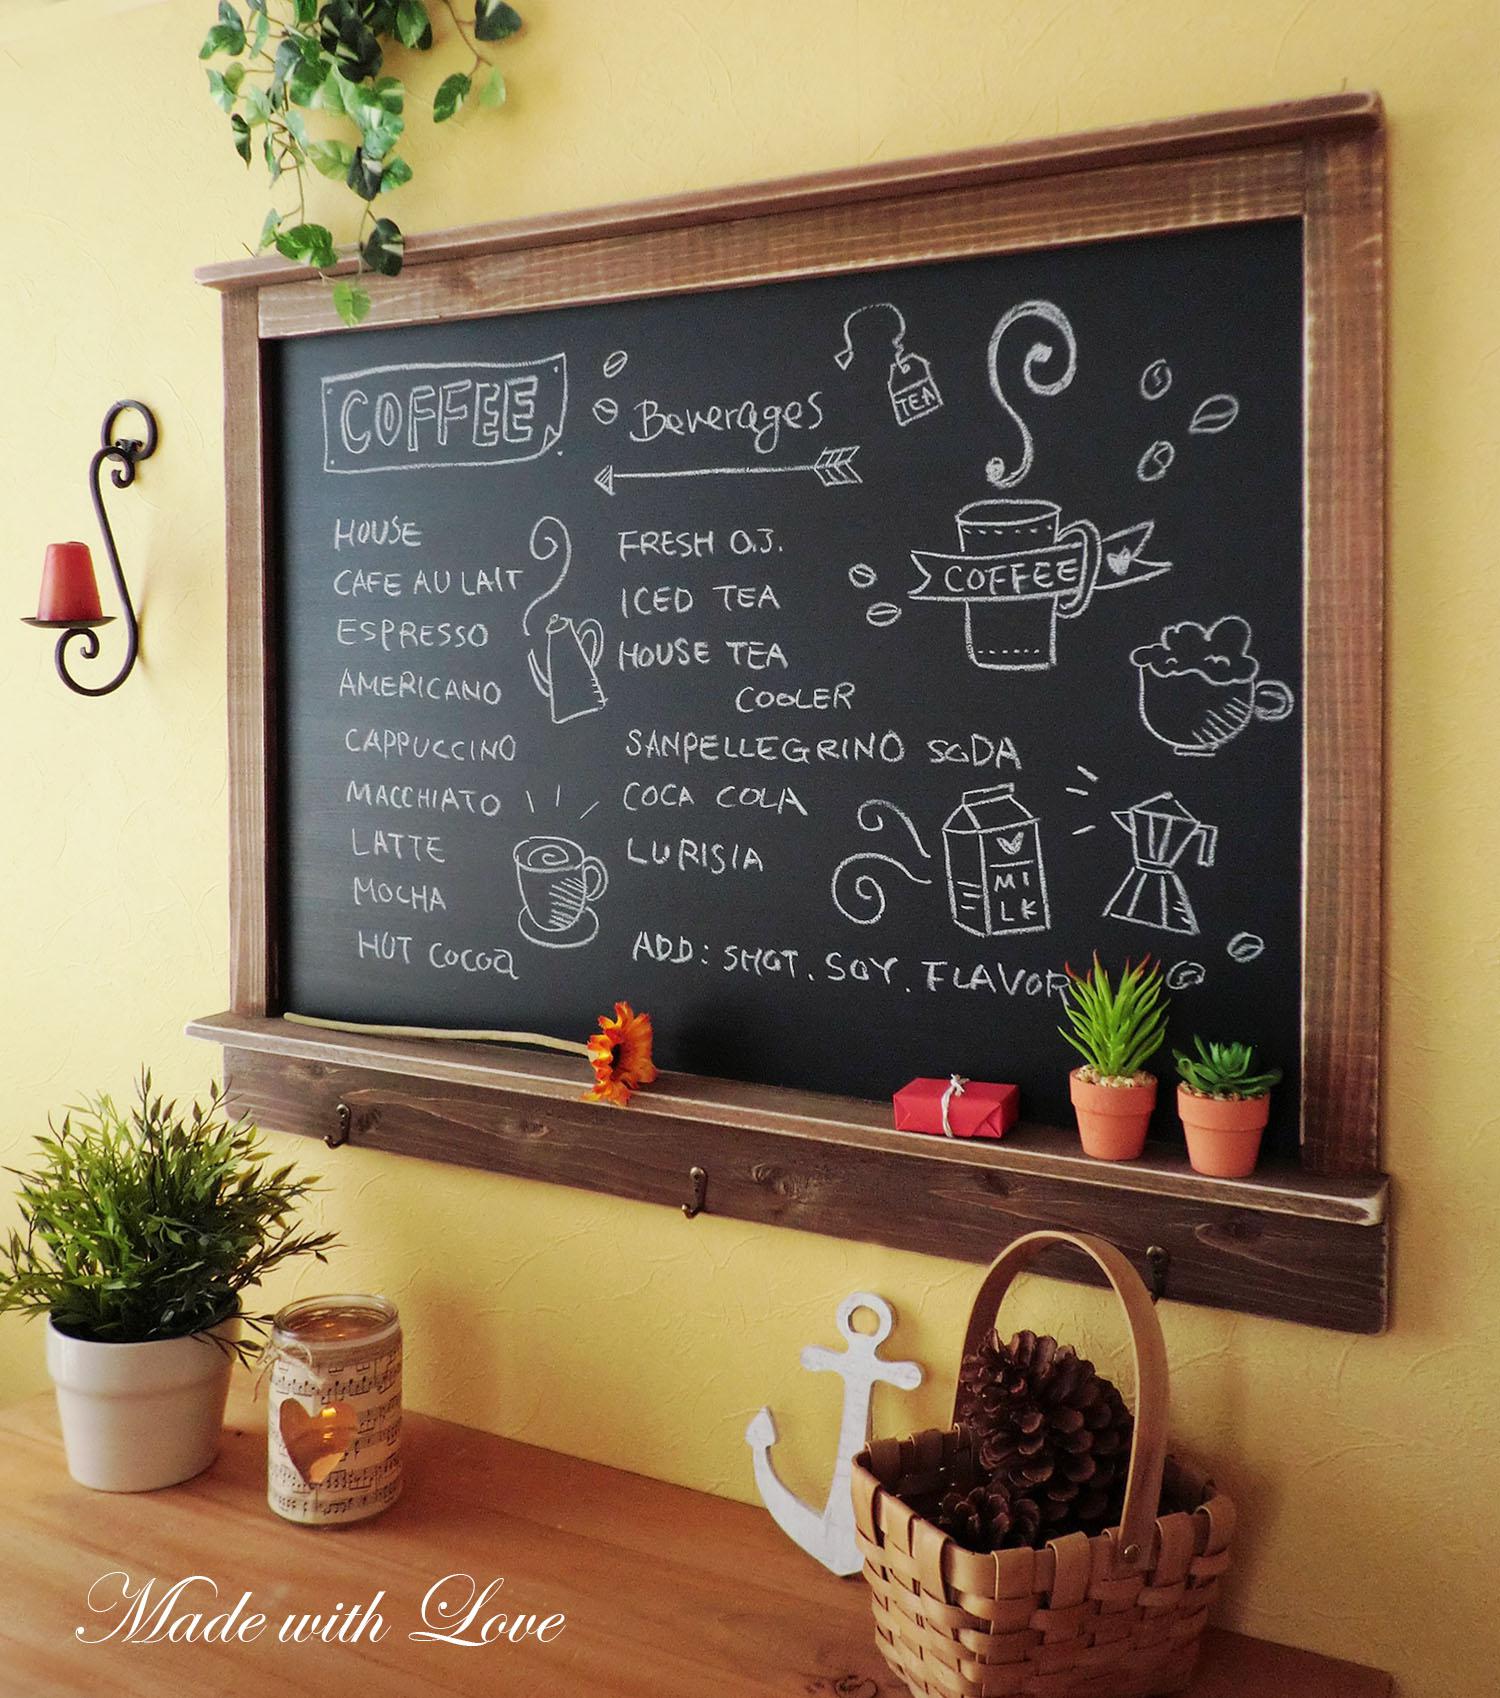 COFFEE
HOUSE
CAFE AU LAIT
ESPRESSO
AMERICANO
CAPPUCCINO
MACCHIATO
LATTE
MOCHA
HOT Cocoa
Beverages
FRESH O.J.
ICED TEA
HOUSE TEA
COOLER
SANPELLEGRINO SODA
COCA COLA
LURISIA
ADD: SHOT. SOY. FLAVOR
TEA
COFFEE
MI
LK
Made with Love